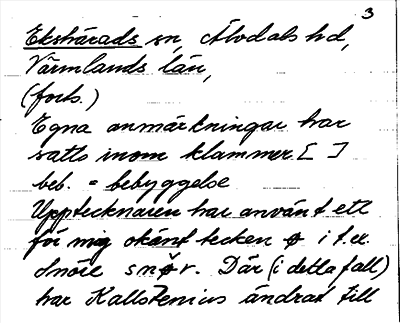 3
Ekshärads sn, Älvdals hd,
Värmlands län,
(forts.)
Egna anmärkningar har
satts inom klammer [ ]
beb. = bebyggelse
Upptecknaren har använt ett
för mig okänt tecken ø i t.ex.
snøv. Där (i detta fall)
har Kallstenius ändrat till